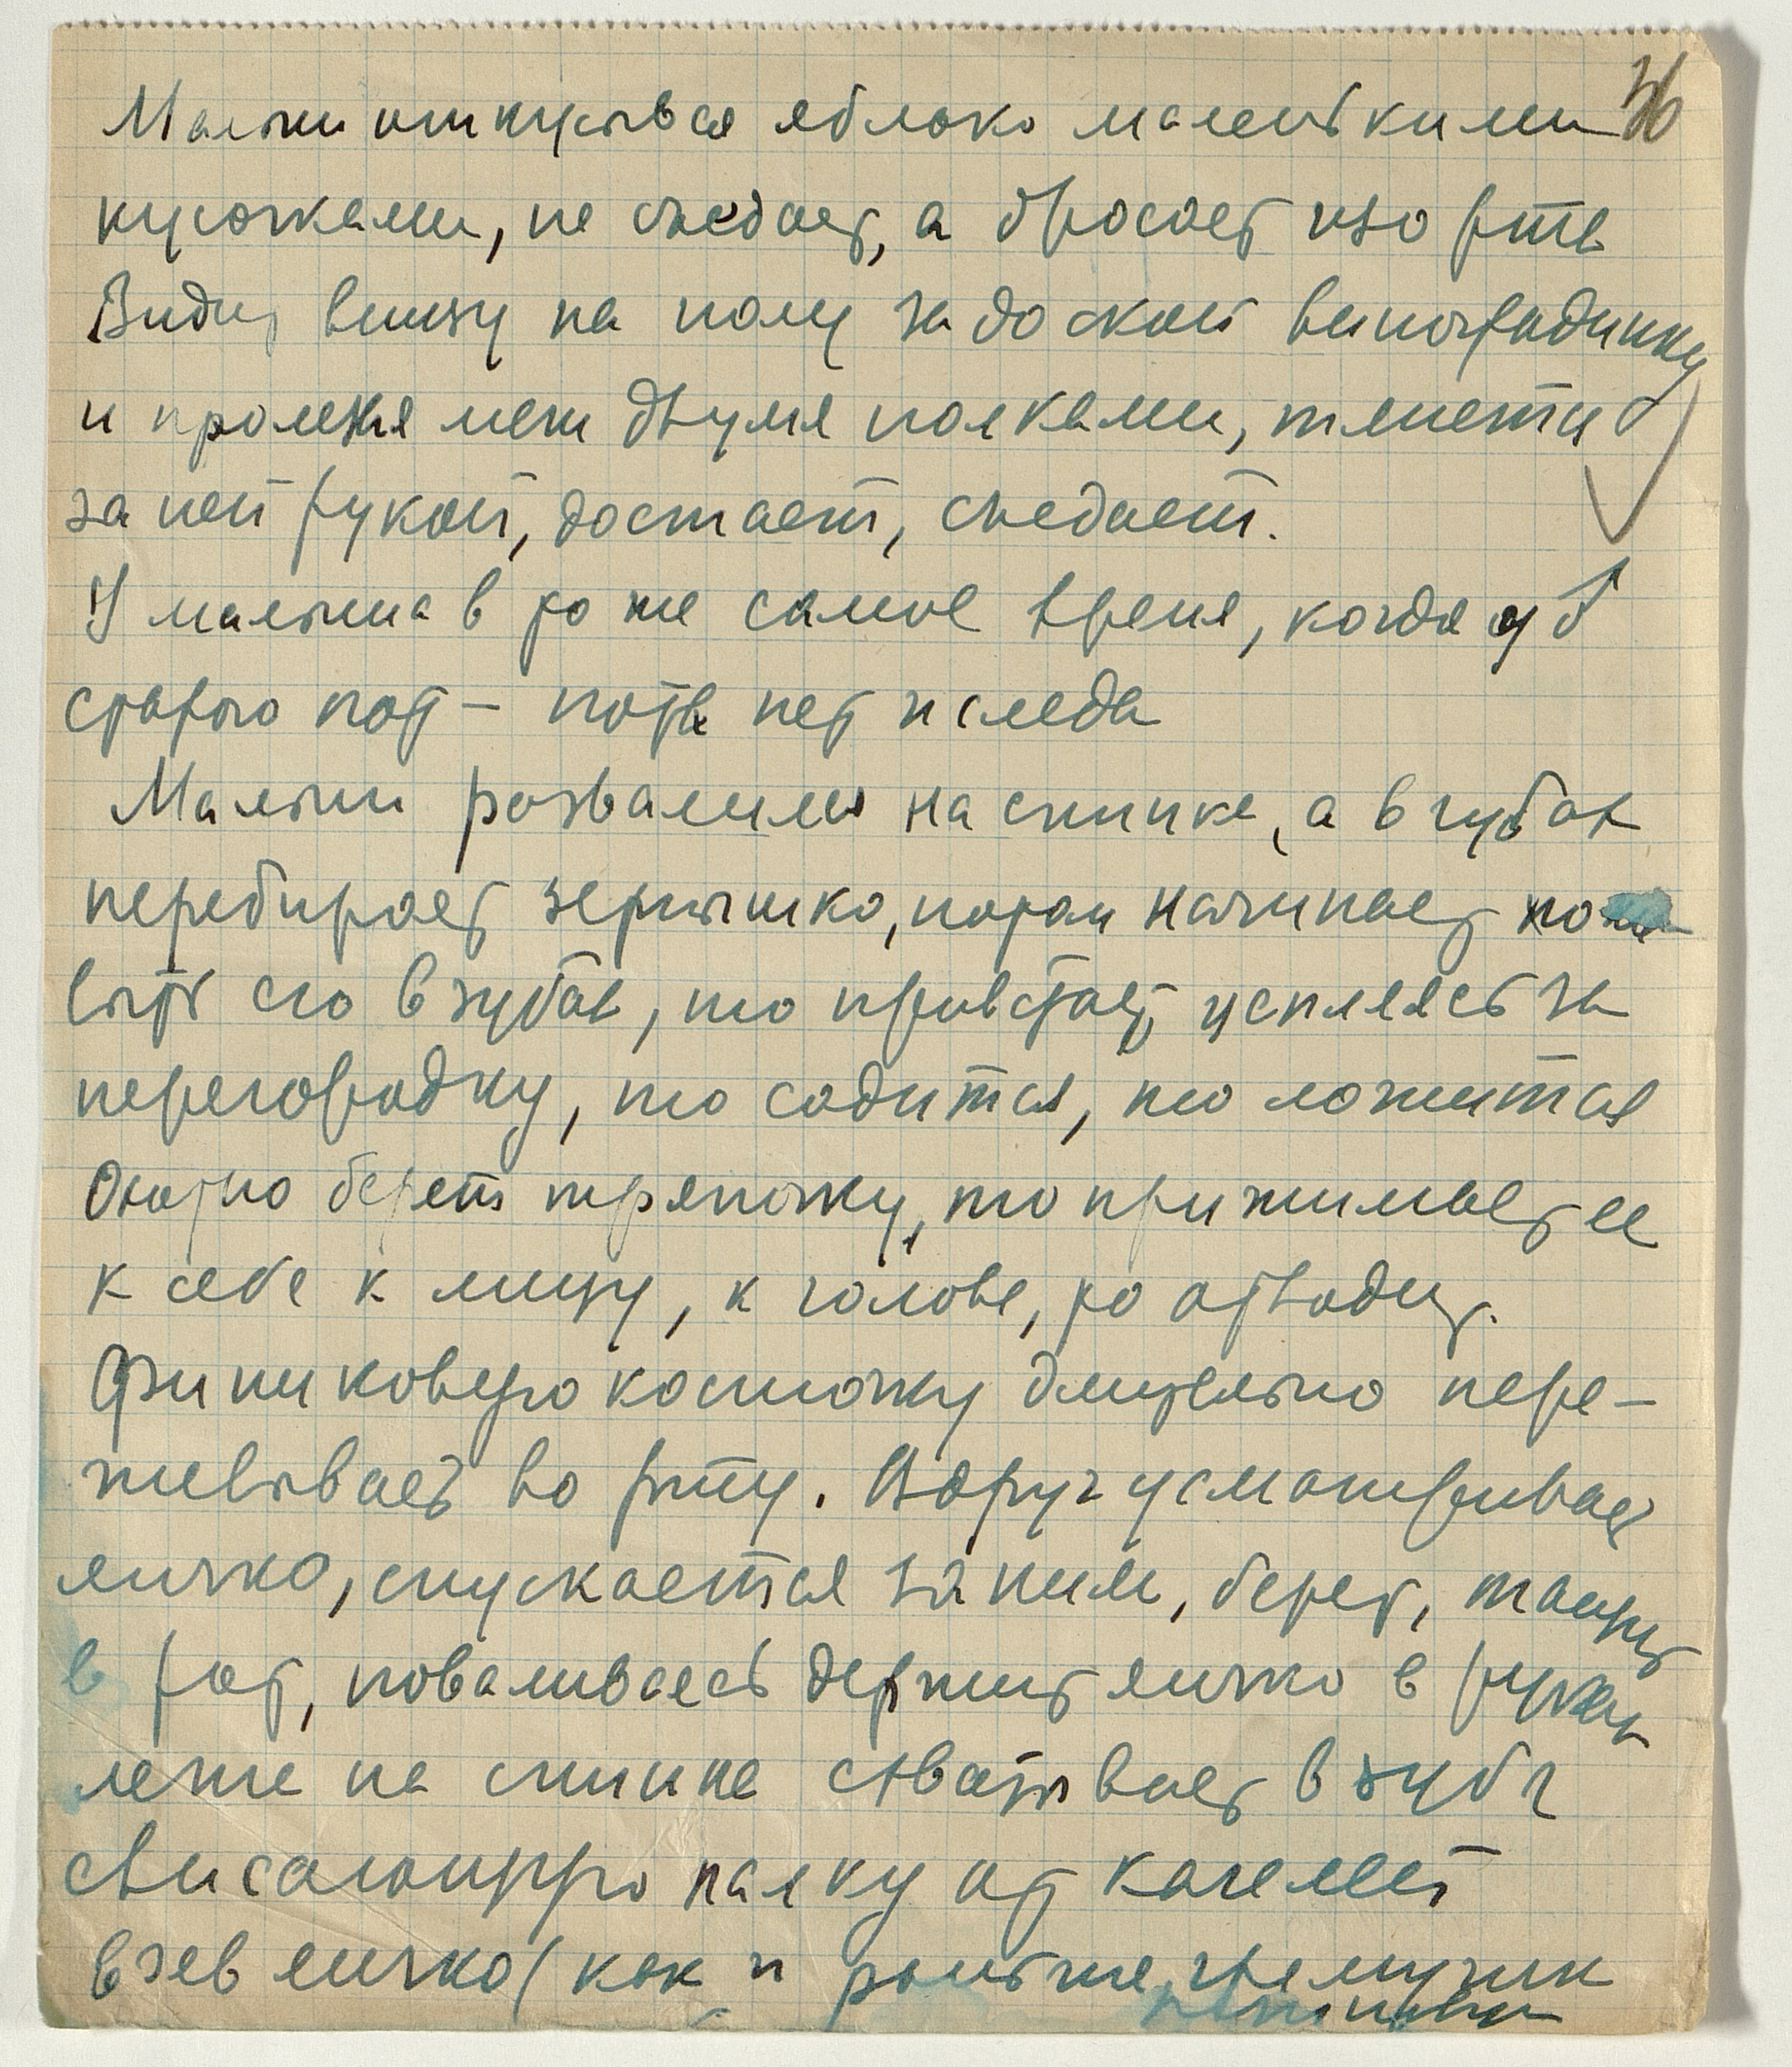 36
Малыш откусывая яблоко маленькими
кусочками, не съедает, а бросает изо рта
Видит внизу на полу за доской виноградинку
и пролезая меж двумя палками, тянется
за ней рукой, достает, съедает.
У малыша в то же самое время, когда у
старого пот — пота нет и следа
Малыш развалился на спинке, а в губах
перебирает зернышко, потом начинает
его в зубах, то привстает, цепляясь за
перегородку, то садится, то ложится
Охотно берет тряпочку, то прижимает ее
к себе к лицу, к голове, то отводит.
Финиковую косточку длительно пере-
жевывает во рту. Вдруг усматривает
яичко, спускается за ним, берет, тащит
в рот, поваливаясь держит яичко в руках
лежа на спинке схватывает в зубы
свисающую палку от качелей
взяв яичко (как и раньше